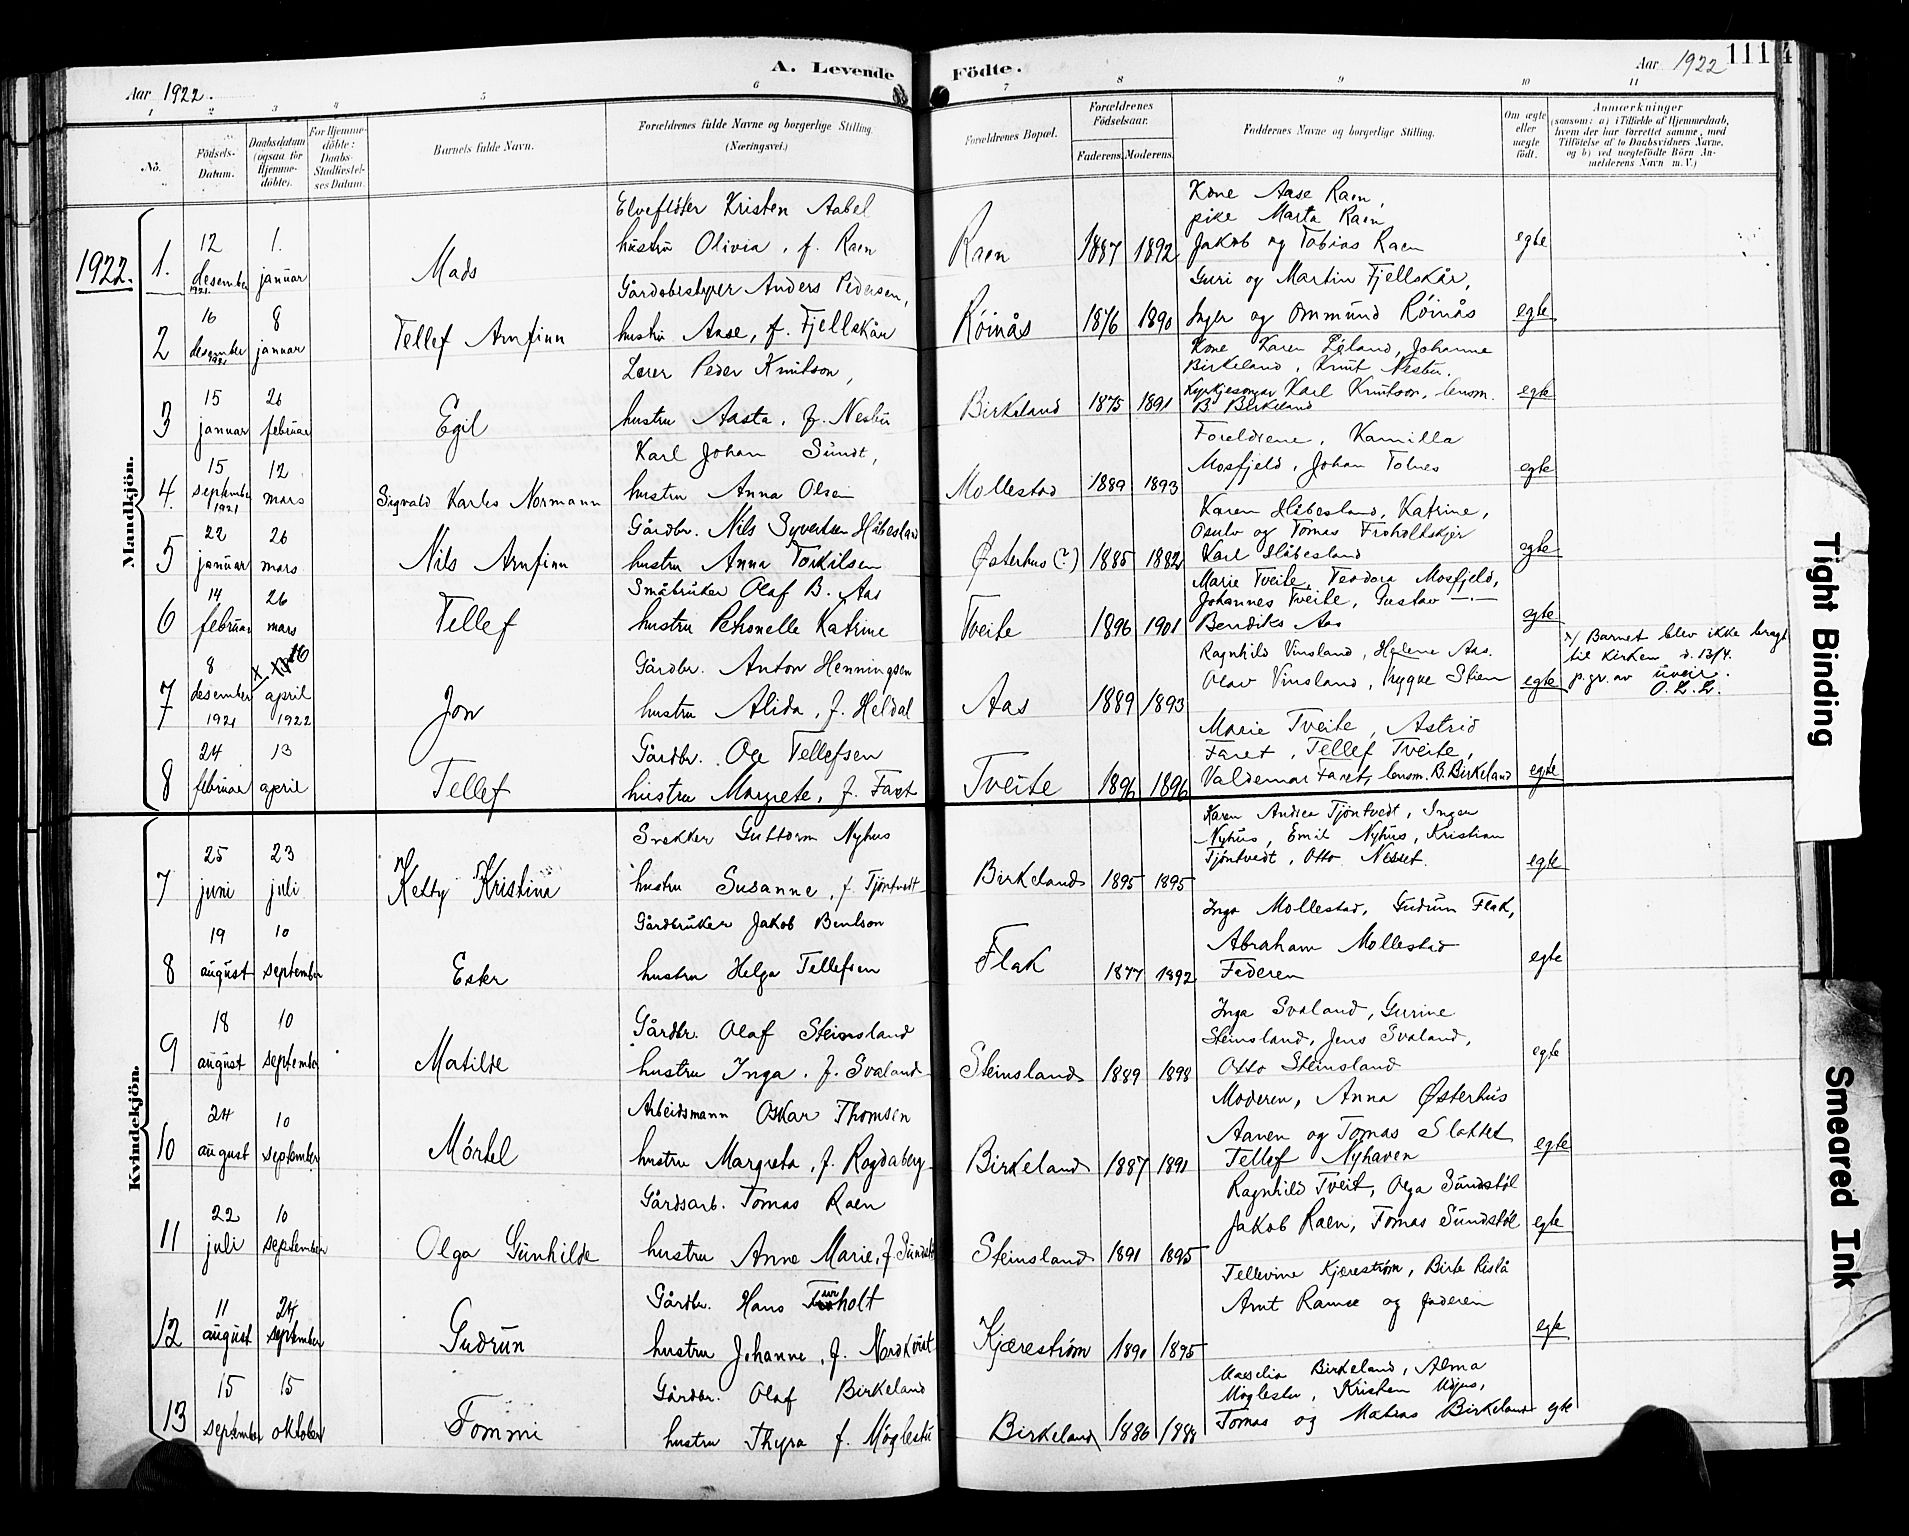 A. Levende Födte.
Aar 1922.
Aar 1922
111
4
1 2 3 4 5 6 7 8 9 10 11
No.
Födsels-Datum.
Daabsdatum (ogsaa for Hjemme-döbte).
For Hjemme-döbte: Daabs-Stadfæstel-ses Datum.
Barnets fulde Navn.
Forældrenes fulde Navne og borgerlige Stilling. (Næringsvei.)
Forældrenes Bopæl.
Forældrenes Födselsaar.
Faderens. Moderens.
Faddernes Navne og borgerlige Stilling.
Om ægte eller uægte født.
Anmærkninger
(saasom: a) i Tilfælde af Hjemmedaab, hvem der har forrettet samme, med Tilföielse af to Daabsvidners Navne, og b) ved uægtefödte Börn Anmelderens Navn m. V.)
1922.
Mandkjön.
1. 12 desember 1921 1. januar Mads
Elvefløter Kristen Aabel
hustru Olivia, f. Raen
Raen 1887 1892
Kone Aase Raen,
pike Marta Raen
Jakob og Tobias Raen
egte
2 16 desember 1921 8 januar Tellef Arnfinn
Gårdsbestyrer Anders Pedersen,
hustru Aase, f. Fjellskår
Røinås 1876 1890
Guri og Martin Fjellskår,
Inger og Ommund Røinås
egte
3 15 januar 26 februar Egil
Lærer Peder Knutson,
hustru Aasta, f. Nesbu
Birkeland 1875 1891
Kone Karen Eiland, Johanne
Birkeland, Knut Nesbu.
Kyrkjesongar Karl Knutson, lensm.
B. Birkeland
egte
4. 15 september 1921 12 mars Sigvald Karlos Normann
Karl Johan Sundt,
hustru Anna Olsen
Mollestad 1889 1893
Foreldrene, Kamilla
Mosfjeld, Johan Tolnes
egte
5 22 januar 26 mars Nils Arnfinn
Gårdbr. Nils Syvertsen Håbesland
hustru Anna Torkilsen
Østerhus (?) 1885 1882
Karen Håbesland, Katrine,
Osulv og Tomas Froholtskjer
Karl Håbesland
egte
6 14 februar 26 mars Tellef
Småbruker Olaf B. Aas
hustru Petronelle Katrine
Tveite 1896 1901
Marie Tveite, Teodora Mosfjeld,
Johannes Tveite, Gustav —.—
Bendiks Aas
egte
7 8 desember 1921 x 16 april 1922 Jon
Gårdbr. Anton Henningsen
hustru Alida, f. Heldal
Aas 1889 1893
Ragnhild Vinsland, Helene Aas.
Olav Vinsland, Trygve Stien
egte
x/ Barnet blev ikke bragt
til Kirken d. 13/4.
p. gr. av uveir.
O. L. L.
8 24 februar 13 april Tellef
Gårdbr. Ole Tellefsen
hustru Margrete, f. Faret
Tveite 1896 1896
Marie Tveite, Astrid
Faret, Tellef Tveite,
Valdemar Faret, lensm. B. Birkeland
egte
Kvindekjön.
7 25 juni 23 juli Ketty Kristina
Snekker Guttorm Nyhus
hustru Susanne, f. Tjøntvedt
Birkeland 1895 1895
Karen Andrea Tjöntvedt, Inger
Nyhus, Emil Nyhus, Kristian
Tjöntvedt, Otto Nesset.
egte
8 19 august 10 september Ester
Gårdbruker Jakob Bentson
hustru Helga Tellefsen
Flak 1877 1892
Inga Mollestad, Gudrun Flak,
Abraham Mollestad
Faderen
egte
9 18 august 10 september Matilde
Gårdbr. Olaf Steinsland
hustru Inga, f. Svaland
Steinsland 1889 1898
Inga Svaland, Gurine
Steinsland, Jens Svaland,
Otto Steinsland
egte
10 24 august 10 september Mörtel
Arbeidsmann Oskar Thomsen
hustru Margreta, f. Rogdaberg
Birkeland 1887 1891
Moderen, Anna Østerhus
Aanen og Tomas Slottet
Tellef Nyhaven
egte
11 22 juli 10 september Olga Gunhilde
Gårdsarb. Tomas Raen
hustru Anne Marie, f. Sundstöl
Steinsland 1891 1895
Ragnhild Tveit, Olga Sundstöl
Jakob Raen, Tomas Sundstöl
egte
12 11 august 24 september Gudrun
Gårdbr. Hans holt
hustru Johanne, f. Nordkvist
Kjærestrøm 1890 1895
Tellevine Kjærestrøm, Birte Rislå
Arnt Ramse og faderen
egte
13 15 september 15 oktober Tommi
Gårdbr. Olaf Birkeland
hustru Thyra f. Møglestu
Birkeland 1886 1888
Birkeland, Alma
Møglestu, Kristen
Tomas og Matias Birkeland
egte
Tight Binding
Smeared Ink